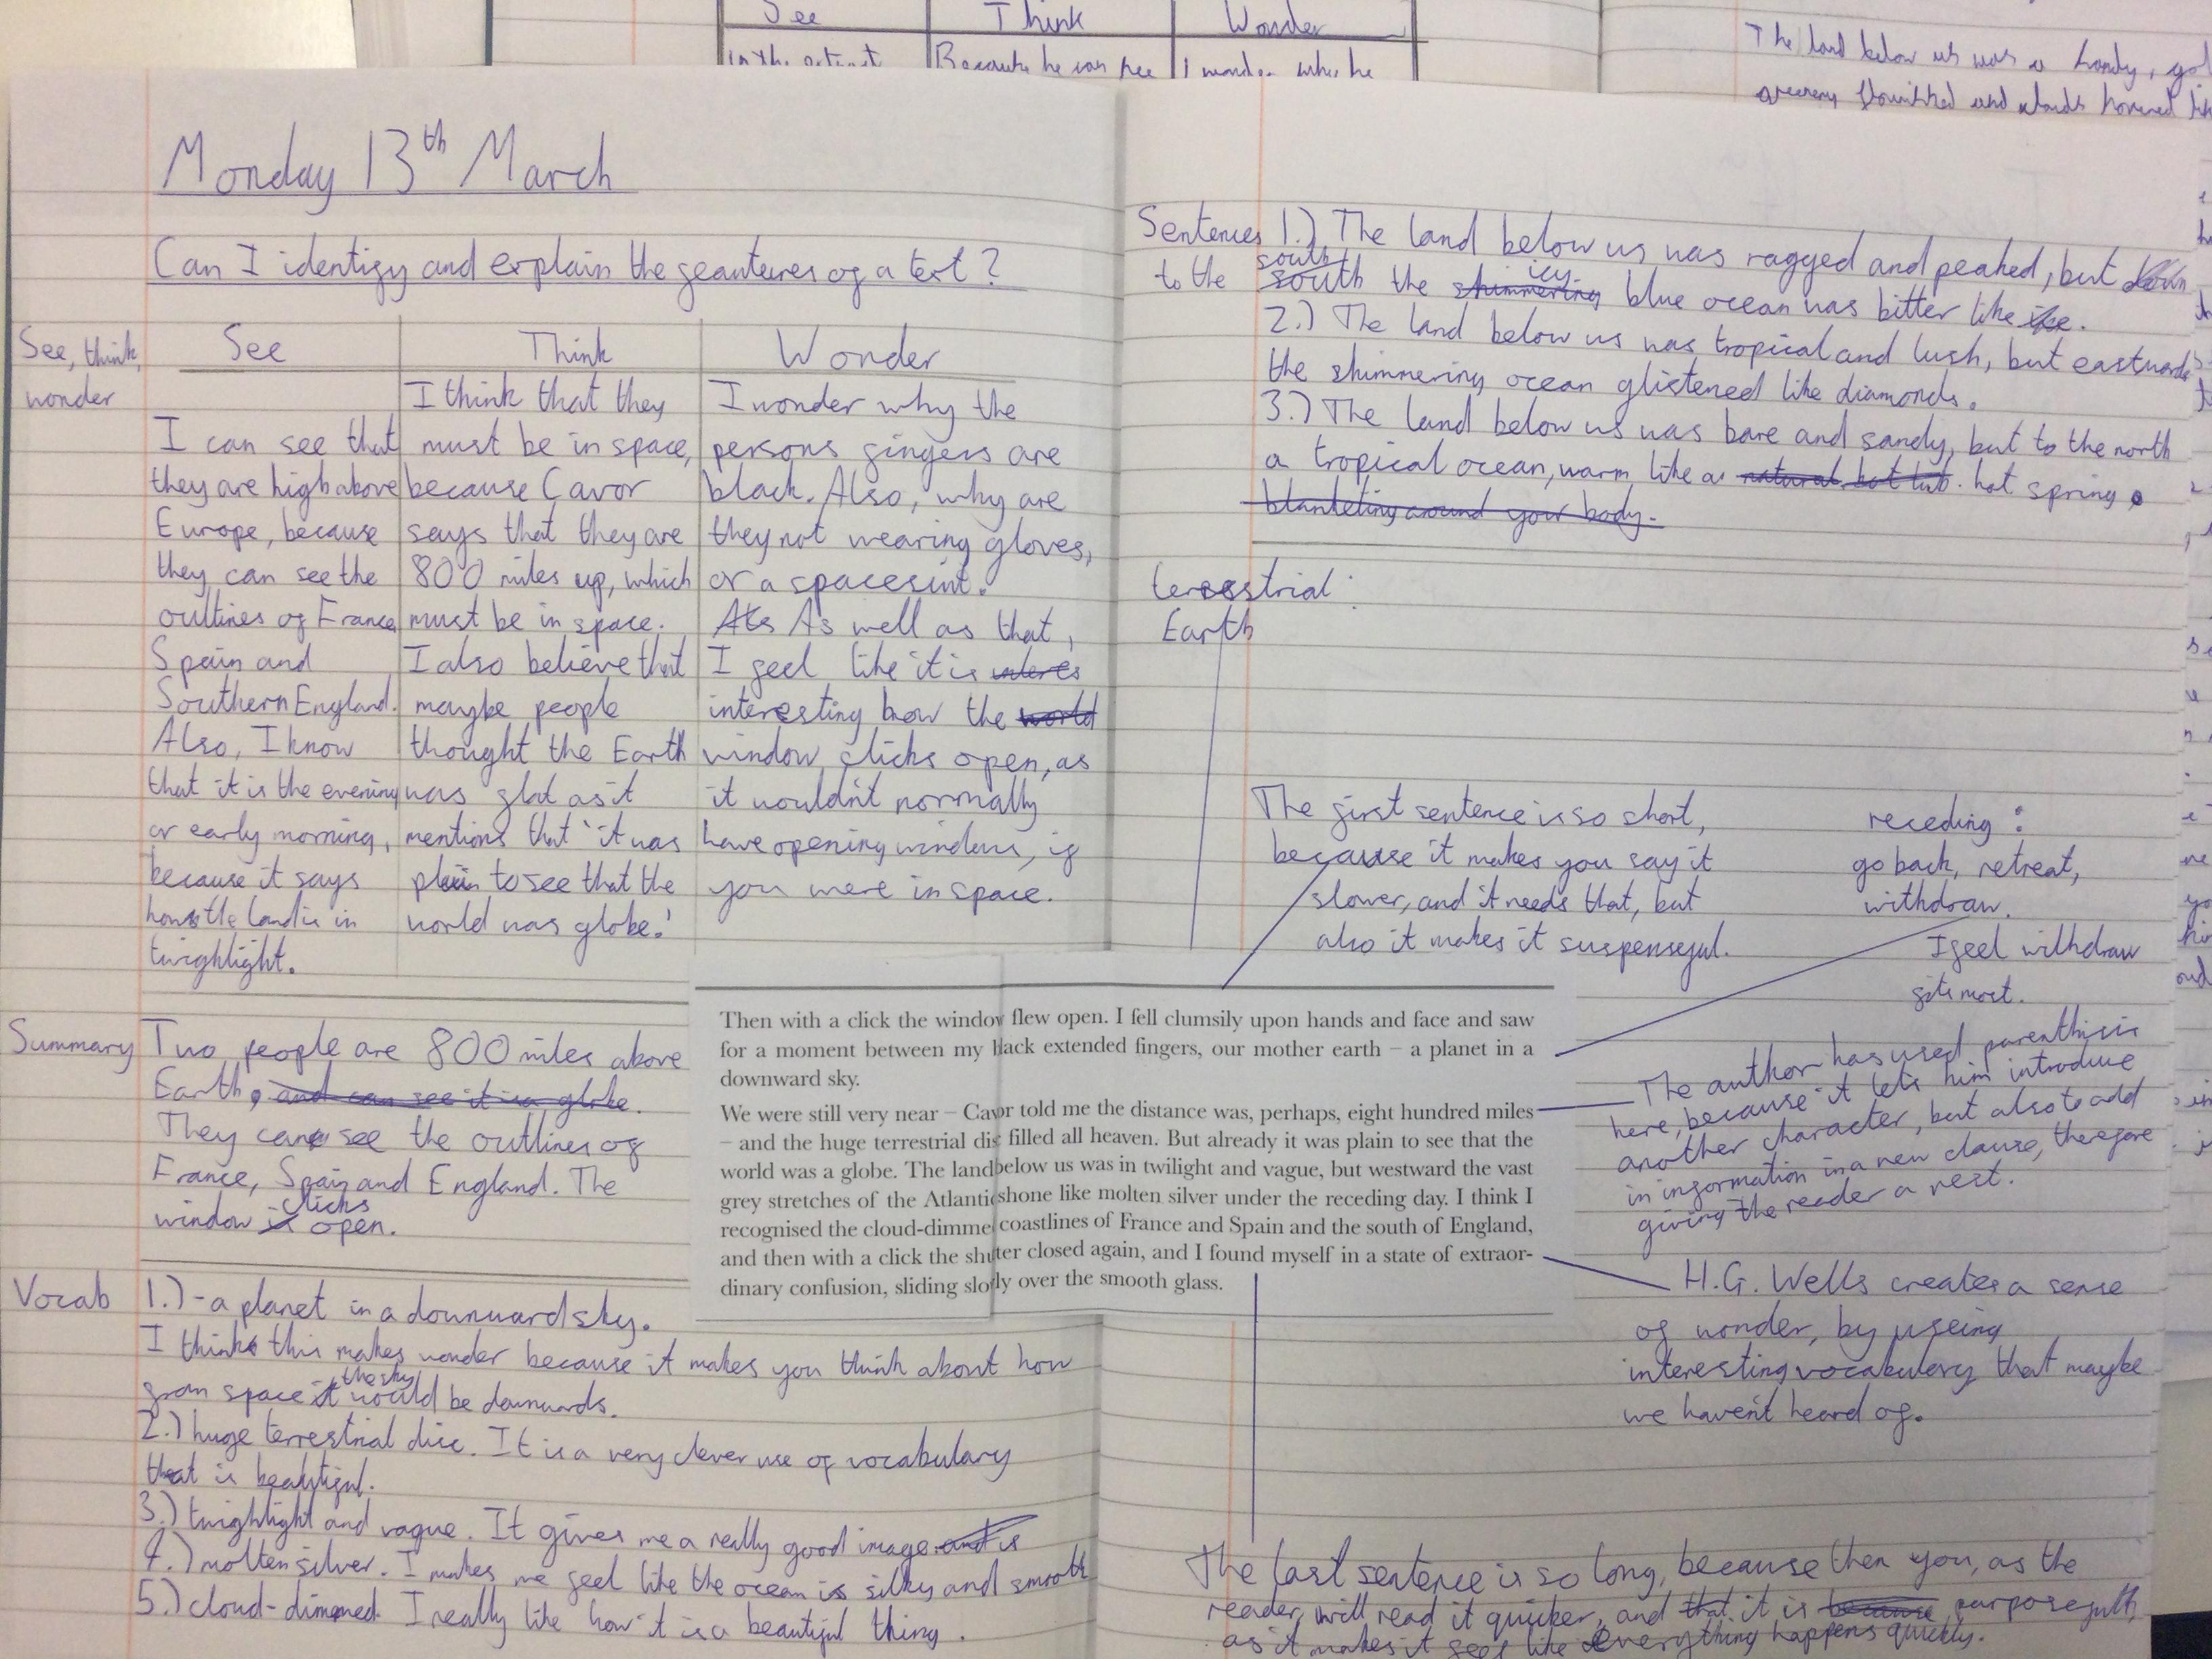 See Think Wonder
Because he can see
I wonder why he
The land below us was a
Monday 13th March
Can I identify and explain the geantures of a text?
See, think,
wonder
See
I can see that
they are high above
Europe, because
they can see the
outlines of France
Spain and
Southern England.
Also, I know
that it is the evening
or early morning,
because it says
how the land is in
twighlight.
Think
I think that they
must be in space,
because Cavor
says that they are
800 miles up, which
must be in space.
I also believe that
maybe people
thought the Earth
was flat as it
mentions that 'it was
plain to see that the
world was globe.'
Wonder
I wonder why the
persons fingers are
black. Also, why are
they not wearing gloves,
or a spacesuit.
As well as that,
I feel like it is
interesting how the world
window clicks open, as
it wouldn't normally
have opening windows, if
you were in space.
Summary
Two people are 800 miles above
Earth, and can see it is a globe.
They can see the outlines of
France, Spain and England. The
clicks
window is open.
Vocab
1.) - a planet in a downward sky.
I think this makes wonder because it makes you think about how
the sky
from space it would be downwards.
2.) huge terrestrial disc. It is a very clever use of vocabulary
that is beautiful.
3.) twighlight and vague. It gives me a really good image and is
4.) molten silver. I makes me feel like the ocean is silky and smooth
5.) cloud-dimmed. I really like how it is a beautiful thing.
Sentences 1.) The land below us was ragged and peaked, but down
south icy
to the south the shimmering blue ocean was bitter like ice.
2.) The land below us was tropical and lush, but eastwards
the shimmering ocean glistened like diamonds.
3.) The land below us was bare and sandy, but to the north
a tropical ocean, warm like a natural hot tub. hot spring.
blanketing around your body.
teresstrial:
Earth
The first sentence is so short,
because it makes you say it
slower, and it needs that, but
also it makes it suspenseful.
receding:
go back, retreat,
withdraw.
I feel withdraw
fits most.
Then with a click the window flew open. I fell clumsily upon hands and face and saw
for a moment between my black extended fingers, our mother earth – a planet in a
downward sky.
We were still very near – Cavor told me the distance was, perhaps, eight hundred miles
– and the huge terrestrial disc filled all heaven. But already it was plain to see that the
world was a globe. The land below us was in twilight and vague, but westward the vast
grey stretches of the Atlantic shone like molten silver under the receding day. I think I
recognised the cloud-dimmed coastlines of France and Spain and the south of England,
and then with a click the shutter closed again, and I found myself in a state of extraor-
dinary confusion, sliding slowly over the smooth glass.
The author has used parenthisis
here, because it lets him introduce
another character, but also to add
in information in a new clause, therefore
giving the reader a rest.
H.G. Wells creates a sense
of wonder, by useing
interesting vocabulary that maybe
we haven't heard of.
The last sentence is so long, because then you, as the
reader, will read it quicker, and that it is because purposefull,
as it makes it feel like everything happens quickly.